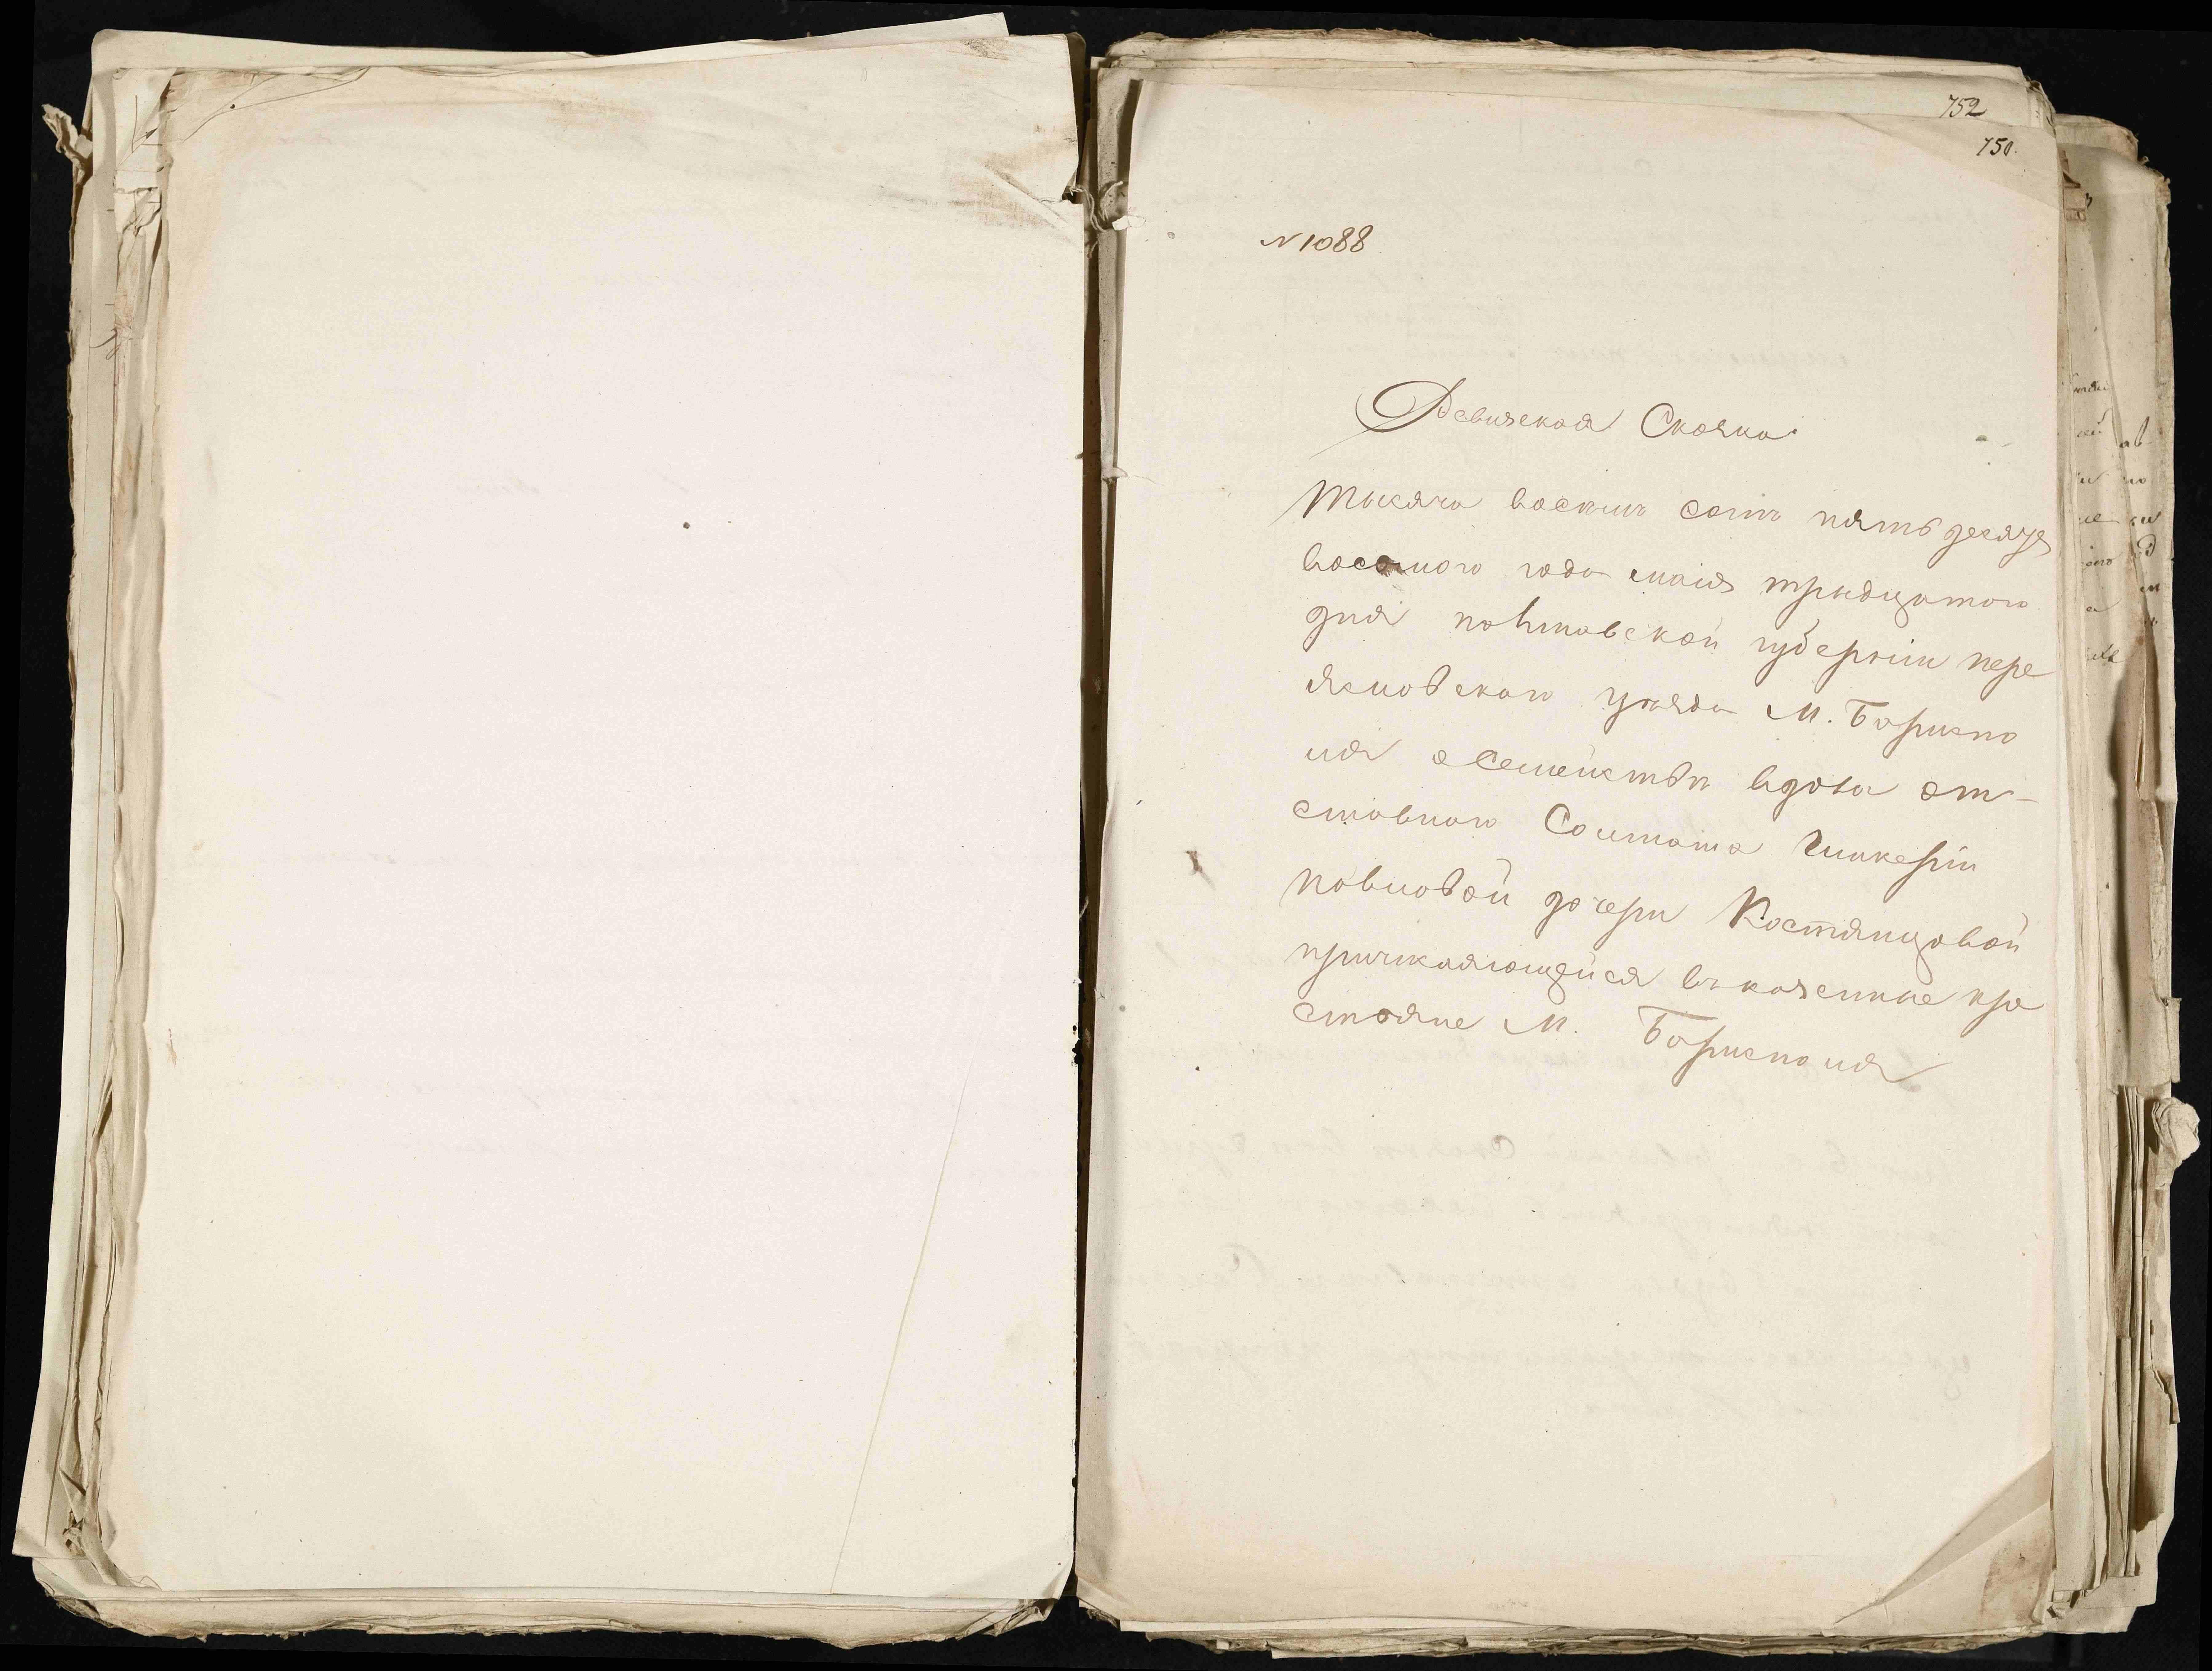 752
750.
N 1088
Ревизская Сказка
Тысяча восемь сотъ пять десядъ
восомого года маия трыдцатого
дня повтавской губернии пере
яславского уезда М. Борыспо
ля осемействѣ вдова от-
ставного Солтата
павловой дочери Костянцовой
причисляющейся въ казенные кре
стояне М. Борысполя